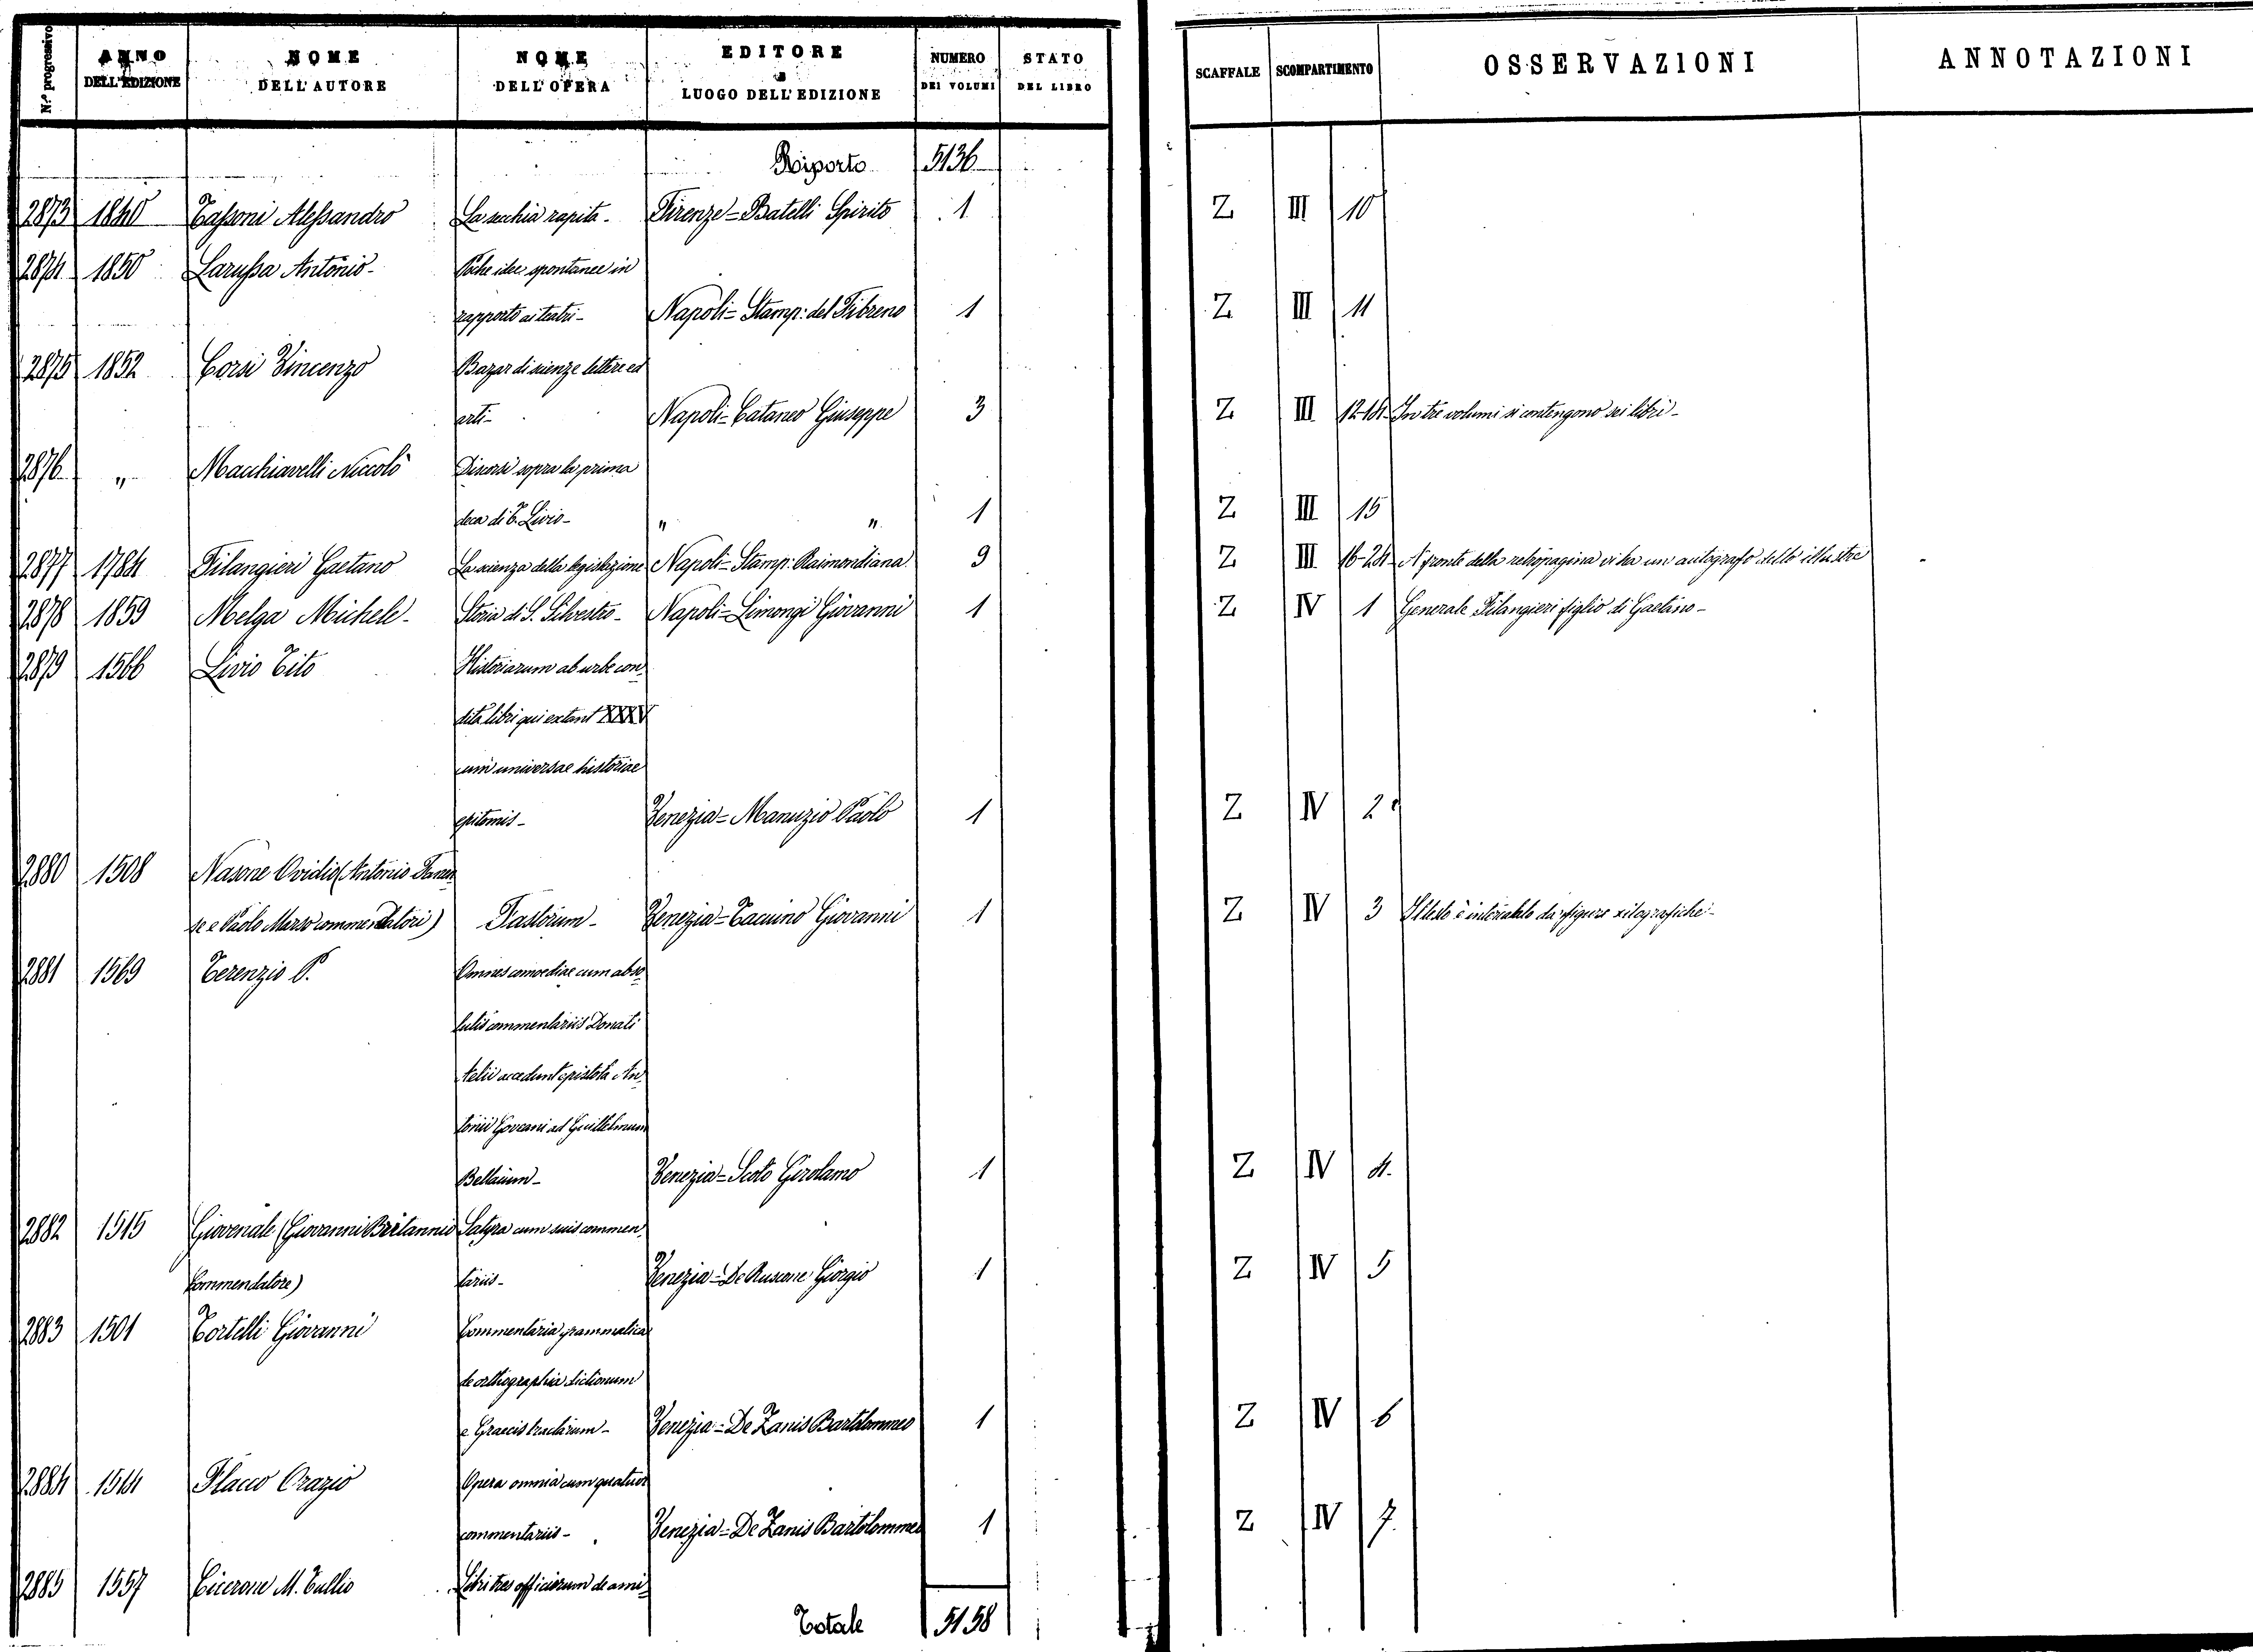 N.º progressivo | ANNO DELL'EDIZIONE | NOME DELL'AUTORE | NOME DELL'OPERA | EDITORE e LUOGO DELL'EDIZIONE | NUMERO DEI VOLUMI | STATO DEL LIBRO | SCAFFALE | SCOMPARTIMENTO | OSSERVAZIONI | ANNOTAZIONI
Riporto 5136
2873 1840 Tassoni Alessandro La secchia rapita - Firenze = Batelli Spirito 1 Z III 10
2874 1850 Larussa Antonio - Poche idee spontanee in
rapporto ai teatri - Napoli = Stamp: del Fibreno 1 Z III 11
2875 1852 Corsi Vincenzo Bazar di scienze lettere ed
arti - Napoli = Cataneo Giuseppe 3 Z III 12-14 In tre volumi si contengono sei libri -
2876 " Macchiavelli Niccolò Discorsi sopra la prima
deca di T. Livio - " " 1 Z III 15
2877 1784 Filangieri Gaetano La scienza della legislazione Napoli = Stamp: Raimondiana 9 Z III 16-24 A fronte della retropagina vi ha un autografo dello illustre
2878 1859 Melga Michele - Storia di S. Silvestro - Napoli = Limongi Giovanni 1 Z IV 1 Generale Filangieri figlio di Gaetano -
2879 1566 Livio Tito Historiarum ab urbe con
dita libri qui extant XXXV
cum universae historiae
epitomis - Venezia = Manuzio Paolo 1 Z IV 2
2880 1508 Nasone Ovidio (Antonio Fanen
se e Paolo Marso commendatori) Fastorum - Venezia = Tacuino Giovanni 1 Z IV 3 Il testo è intercalato da figure xilografiche -
2881 1569 Terenzio P. Omnes comoediae cum abso
lutis commentariis Donati
Aelii accedunt epistola An
tonii Goveani ad Guillelmum
Bellaium - Venezia = Scoto Girolamo 1 Z IV 4.
2882 1515 Giovenale (Giovanni Britannio Satyra cum suis commen
Commendatore) tariis - Venezia = De Rusconi Giorgio 1 Z IV 5
2883 1501 Tortelli Giovanni Commentaria grammatica
de orthographia dictionum
e Graecis tractarum - Venezia = De Zanis Bartolommeo 1 Z IV 6
2884 1514 Flacco Orazio Opera omnia cum quatuor
commentariis - Venezia = De Zanis Bartolommeo 1 Z IV 7.
2885 1557 Cicerone M. Tullio Libri tres officiorum de ami
Totale 5158